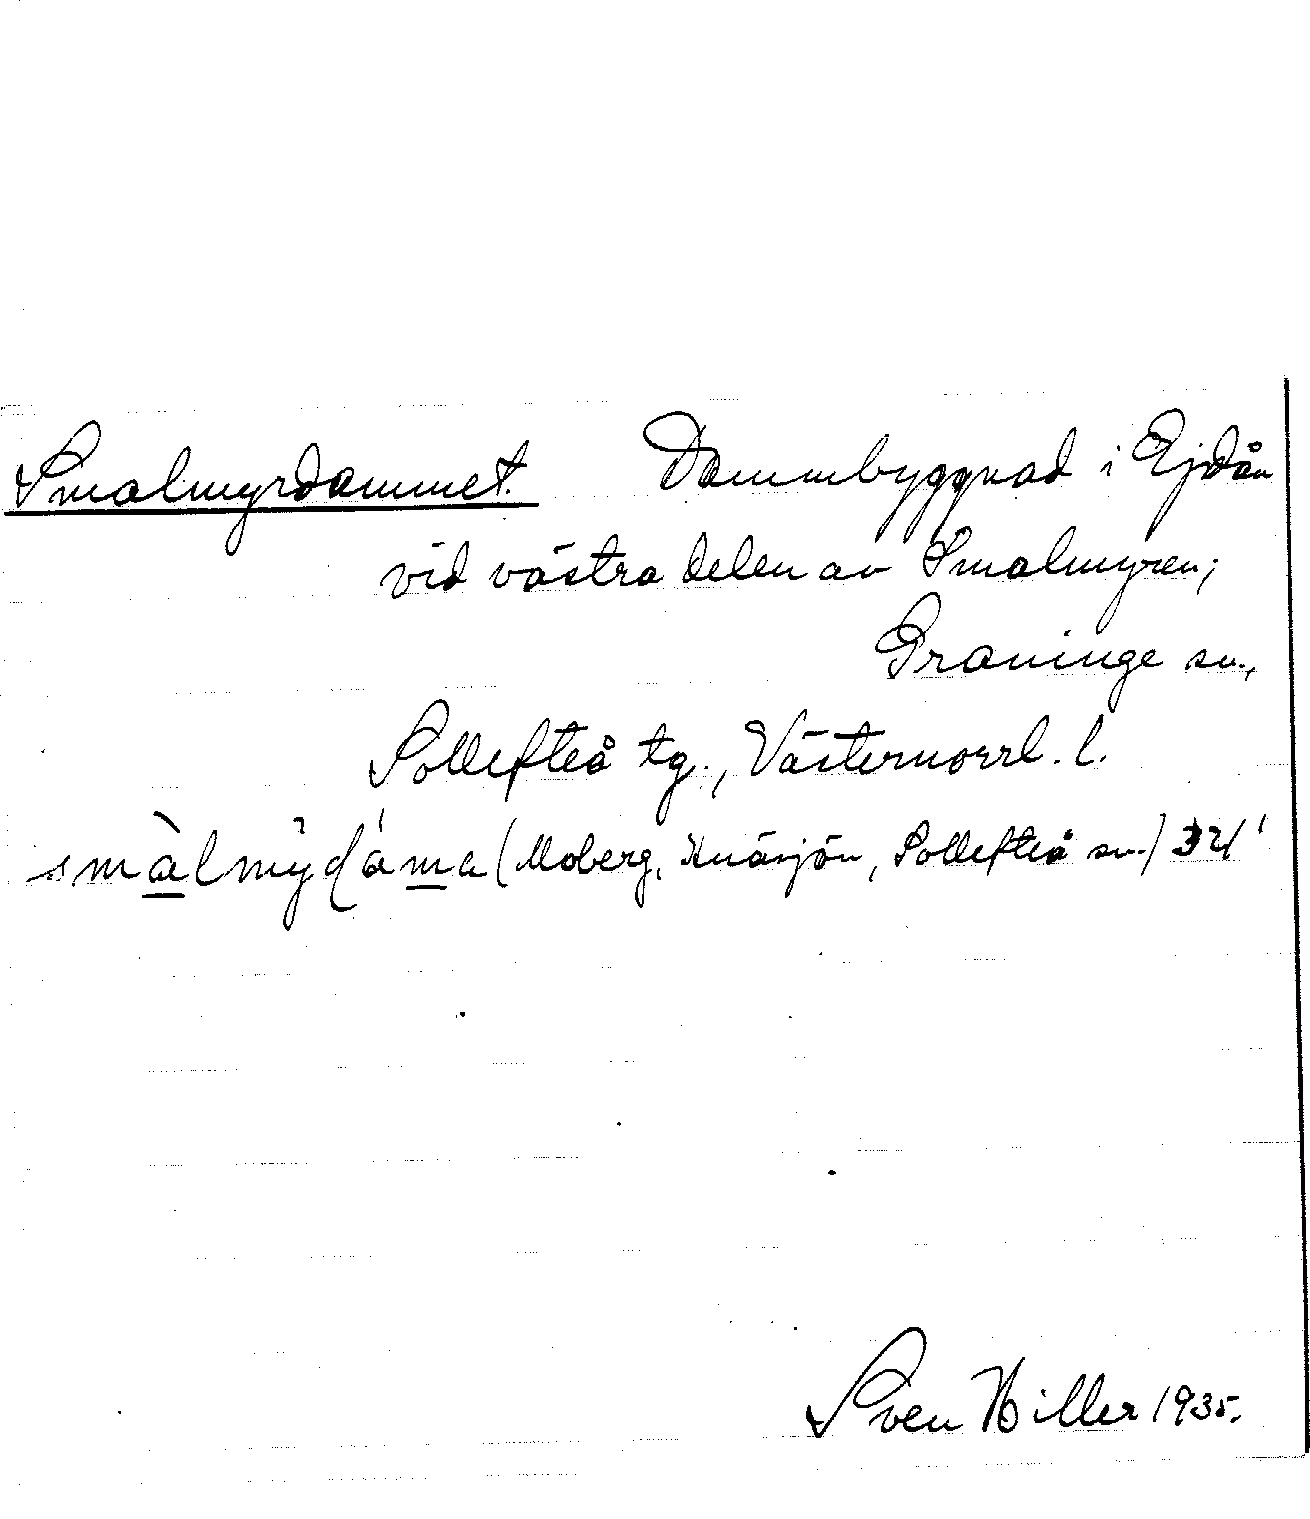 Smalmyrdammet. Dammbyggnad i Ejdån
vid västra delen av Smalmyren;
Graninge sn.,
Sollefteå tg., Västernorrl. l.
(Moberg, Knäsjön, Sollefteå sn.)
Sven Hiller 1935.